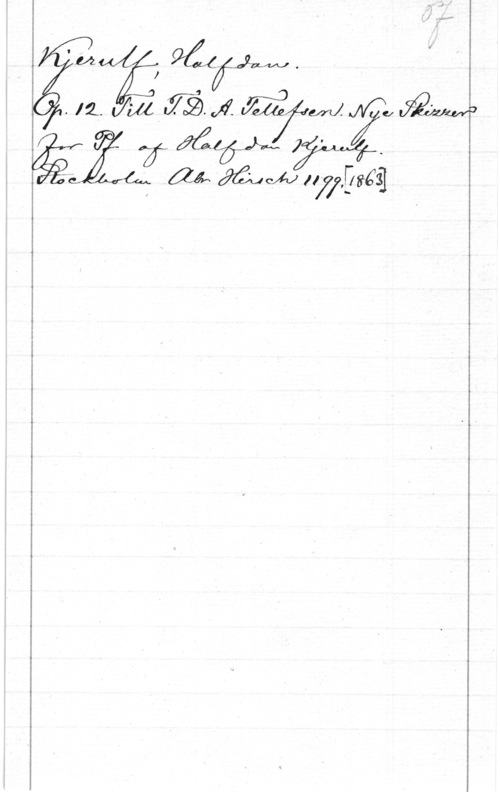 Kjerulf, Halfdan.
Op. 12. Till T. D. A. Tellefsen. Nye Skizzer
for Pf. af Halfdan Kjerulf.
Stockholm Abr Hirsch 1199. [1863]